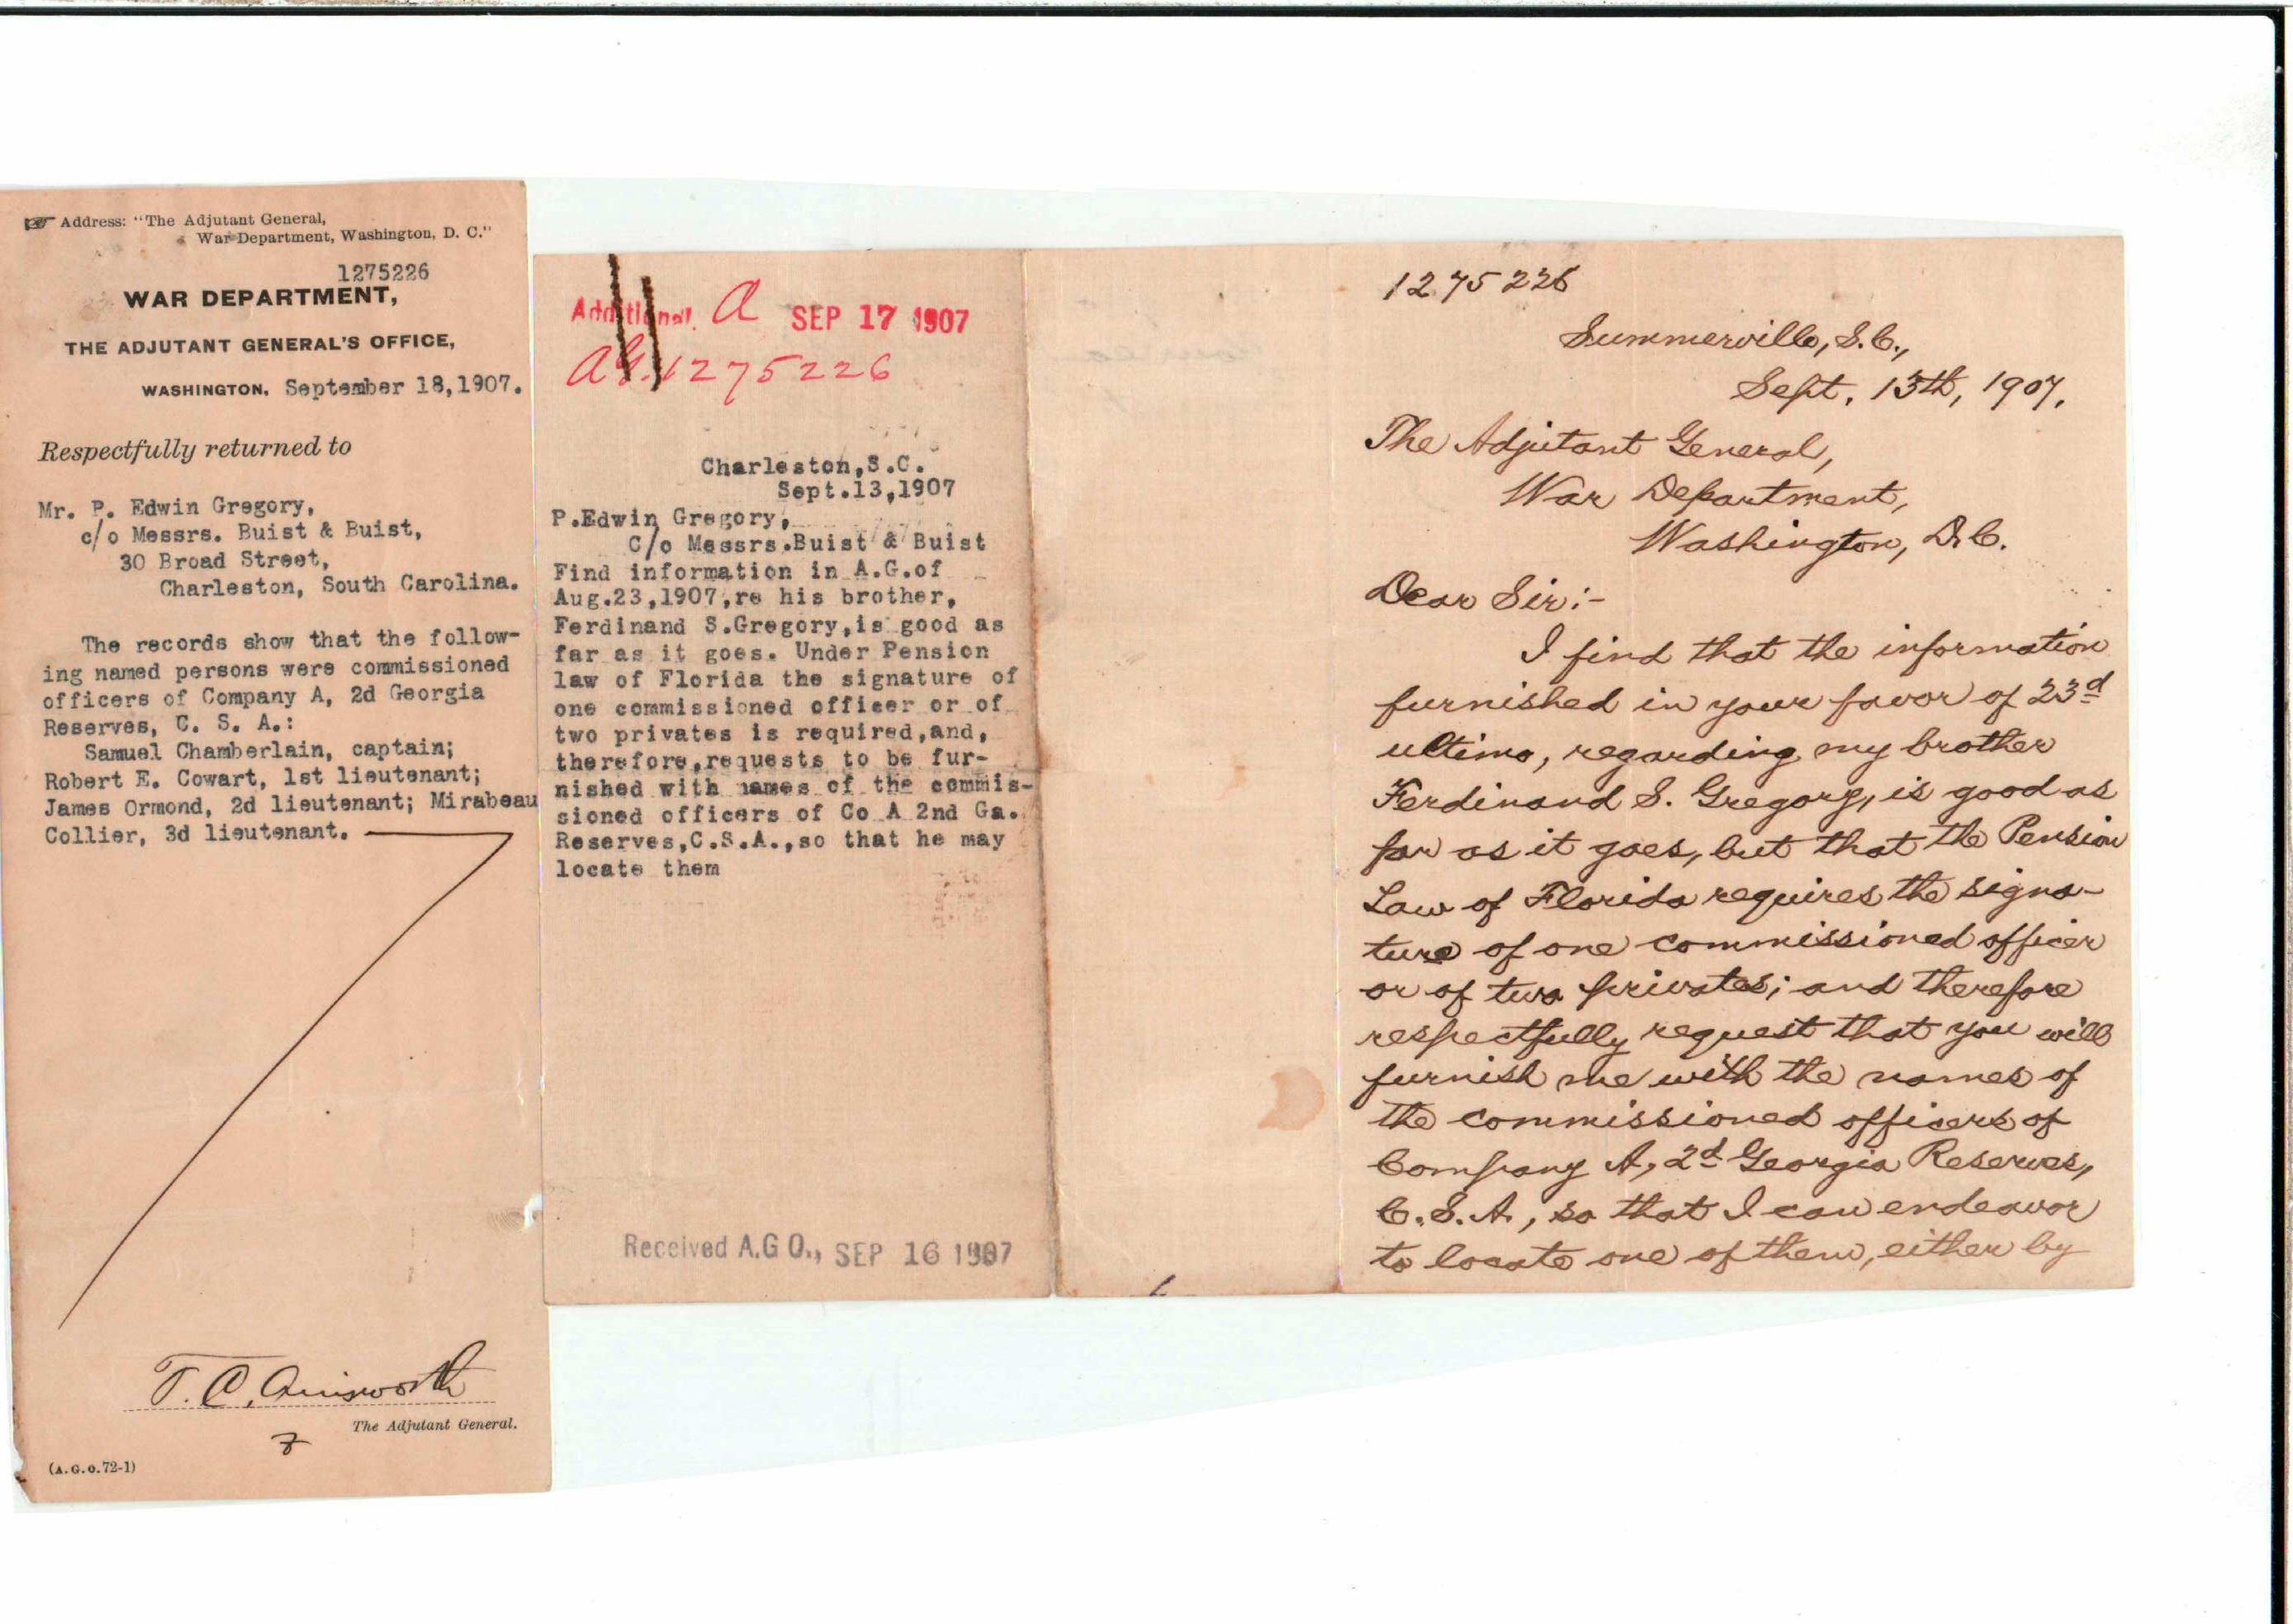 Address: "The Adjutant General,
War Department, Washington, D. C."
1275226
WAR DEPARTMENT,
THE ADJUTANT GENERAL'S OFFICE,
WASHINGTON, September 18,1907.
Respectfully returned to
Mr. P. Edwin Gregory,
c/o Messrs. Buist & Buist,
30 Broad Street,
Charleston, South Carolina.
The records show that the follow-
ing named persons were commissioned
officers of Company A, 2d Georgia
Reserves, C. S. A.:
Samuel Chamberlain, captain;
Robert E. Cowart, 1st lieutenant;
James Ormond, 2d lieutenant; Mirabeau
Collier, 3d lieutenant.
F. C. Ainsworth
The Adjutant General.
7
(A.G.O.72-1)
Additional. A SEP 17 1907
AG. 1275226
Charleston,S.C.
Sept.13,1907
P.Edwin Gregory,
C/o Messrs.Buist & Buist
Find information in A.G.of
Aug.23,1907,re his brother,
Ferdinand S.Gregory,is good as
far as it goes. Under Pension
law of Florida the signature of
one commissioned officer or of
two privates is required,and,
therefore,requests to be fur-
nished with names of the commis-
sioned officers of Co A 2nd Ga.
Reserves,C.S.A.,so that he may
locate them
Received A.G O., SEP 16 1907
1275226
Summerville, S.C.,
Sept. 13th, 1907.
The Adjutant General,
War Department,
Washington, D.C.
Dear Sir:-
I find that the information
furnished in your favor of 23d
ultimo, regarding my brother
Ferdinand S. Gregory, is good as
far as it goes, but that the Pension
Law of Florida requires the signa-
ture of one commissioned officer
or of two privates; and therefore
respectfully request that you will
furnish me with the names of
the commissioned officers of
Company A, 2d Georgia Reserves,
C.S.A., so that I can endeavor
to locate one of them, either by